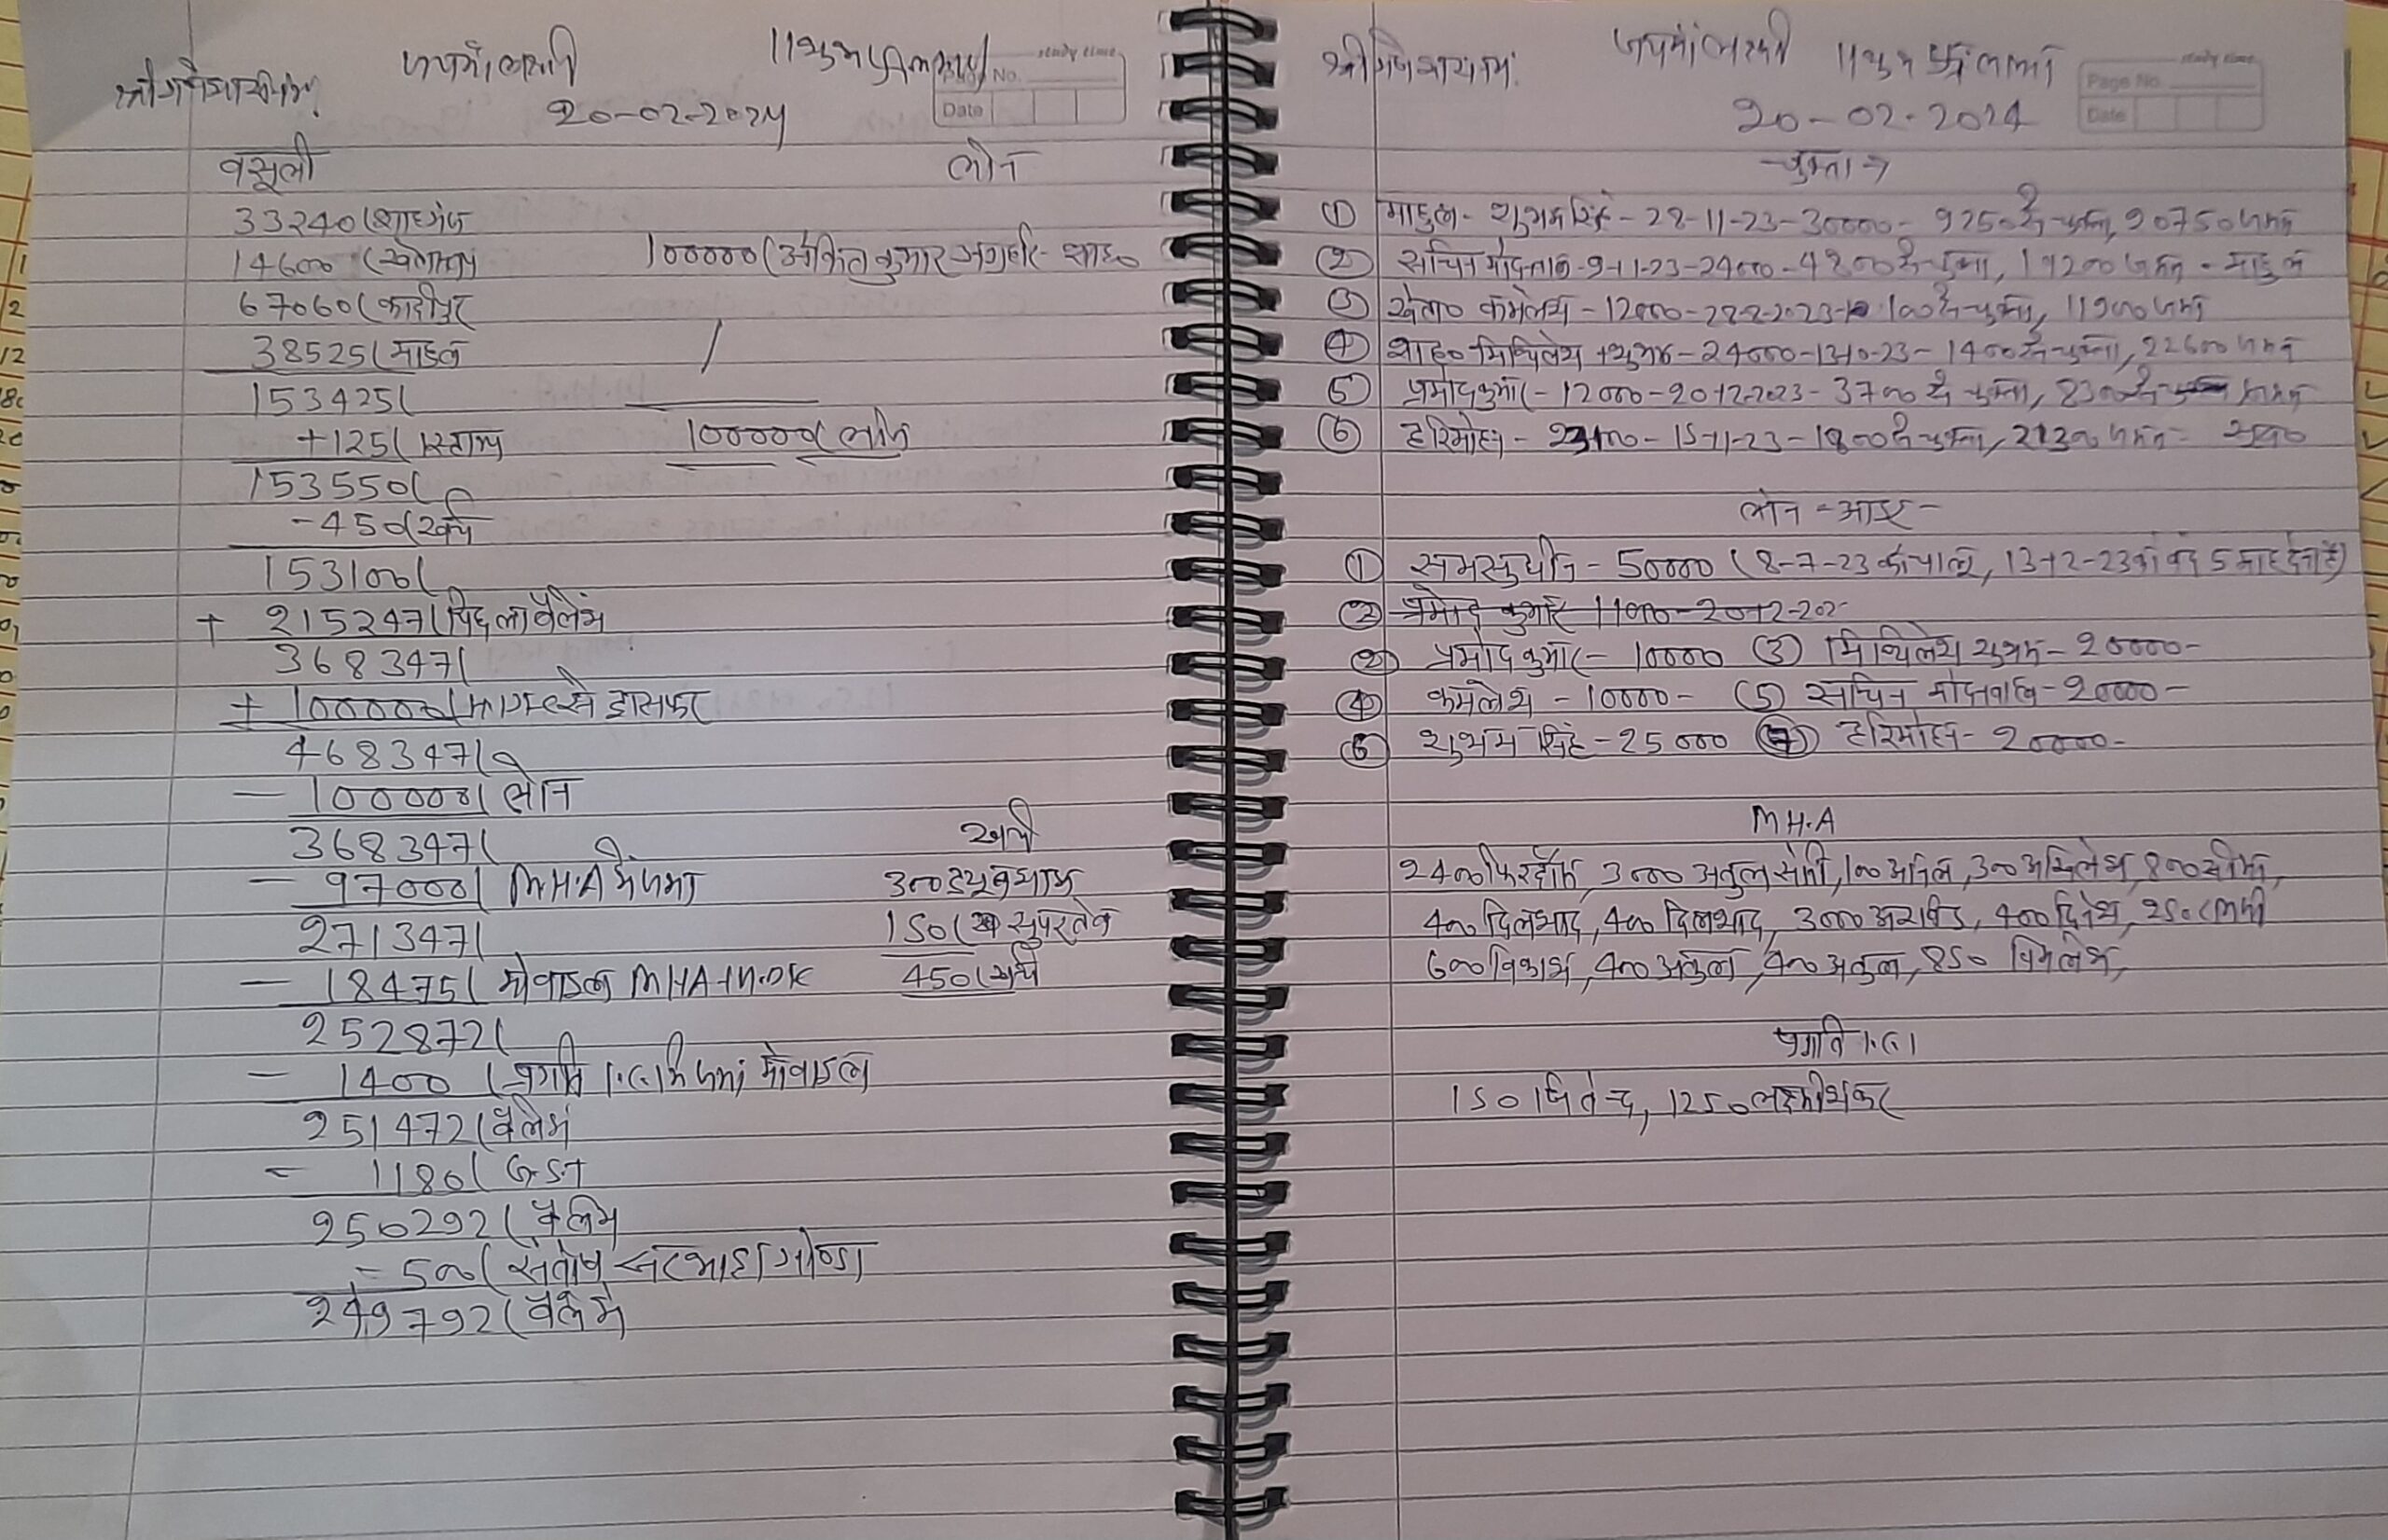 श्री गणेशाय नमः जय माँ लक्ष्मी ॥शुभ
Page No. study time
Date
20-02-2024
वसूली लोन
33240/ शाहगंज
14600/
100000/ अंकित कुमार अग्रहरि - शाह०
67060/ कादीपुर
38525/ माहुल
153425/
+125/ स्टाम्प
100000/ लोन
153550/
-450/ खर्च
153100/
+ 215247/ पिछला बैलेंस
368347/
+ 100000/ ट्रांसफर
468347/
- 100000/ लोन
368347/
खर्च
- 97000/ M.H.A में जमा
300
271347/
150/ सुपरनेट
- 18475/ मोबाइल MHA
450/ खर्च
252872/
- 1400/ प्रगति I.C.I में जमा मोबाइल
251472/ बैलेंस
- 1180/ G.S.T
250292/ बैलेंस
- 500/ संतोष
249792/ बैलेंस
श्री गणेशाय नमः जय माँ लक्ष्मी ॥शुभ
study time
Page No.
Date
20-02-2024
चुक्ता →
① माहुल - शुभम सिंह - 28-11-23 - 30000 - 9250 से चुक्ता, 20750 जमा
② सचिन मोदनवाल - 9-11-23 - 24000 - 4800 से चुक्ता, 19200 जमा - माहुल
③ खेता० कमलेश - 12000 - 22-2-2023 - 100 से चुक्ता, 11900 जमा
④ शाह० मिथिलेश + शुभम - 24000 - 13-10-23 - 1400 से चुक्ता, 22600 जमा
⑤ प्रमोद कुमार - 12000 - 20-12-2023 - 3700 से चुक्ता, 8300 जमा
⑥ हरिमोहन - 15-11-23 - 1800 से चुक्ता, 21300 जमा -
लोन - आइ -
① समसुद्दीन - 50000 (8-7-23 को चालू, 13-12-23 को बंद 5 माह देना है)
② प्रमोद कुमार 11000 - 20-12-202
② प्रमोद कुमार - 10000 ③ मिथिलेश शुभम - 20000 -
④ कमलेश - 10000 - ⑤ सचिन मोदनवाल - 20000 -
⑥ शुभम सिंह - 25000 ⑦ हरिमोहन - 20000 -
M.H.A
2400 फिरदौस, 3000 अतुल सोनी, 100 अनिल, 300 अखिलेश, 800
400 दिलशाद, 400 दिलशाद, 3000 अरविंद, 400 दिनेश, 250
600 विकाश, 400 अतुल, 400 अतुल, 850 विमलेश,
प्रगति I.C.I
150 जितेन्द्र, 1250 लक्ष्मीशंकर